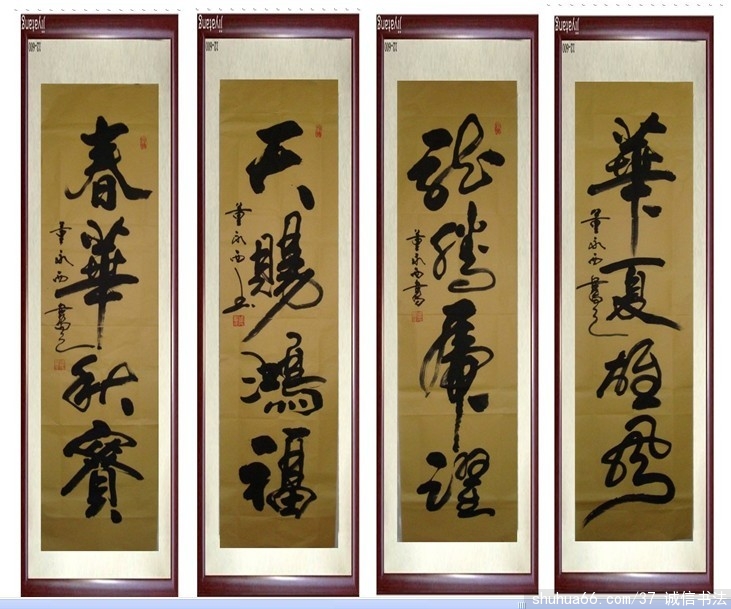 jiyatang
春華秋實
董永西書
jiyatang
天賜鴻福
董永西
jiyatang
龍騰虎躍
董永西書
jiyatang
華夏雄風
董永西書
shuhua66.com/37 诚信书法